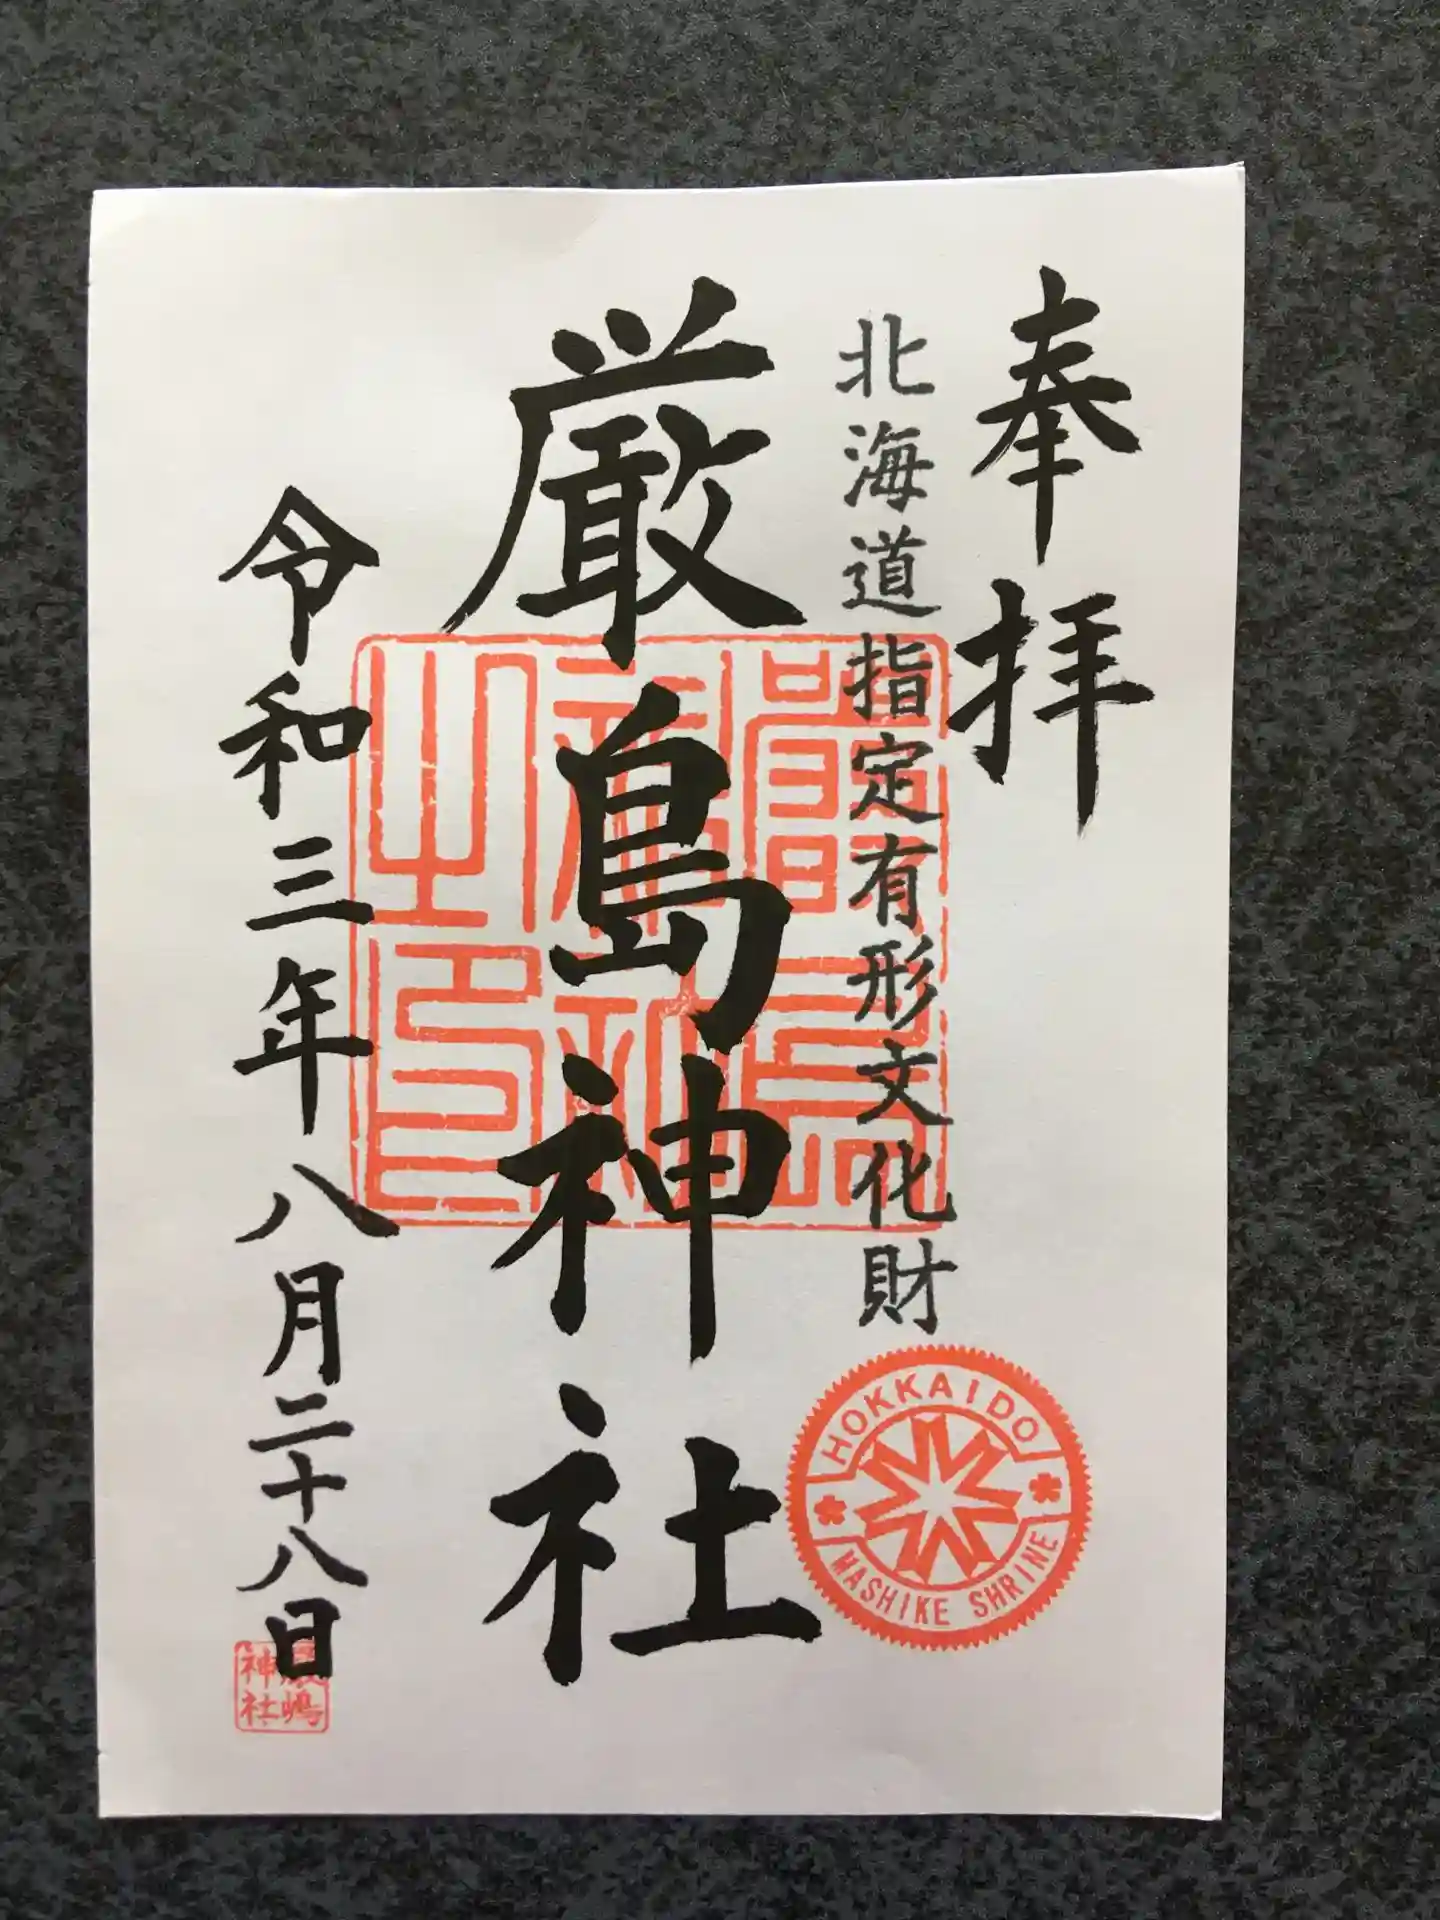 奉拝
北海道指定有形文化財
厳島神社
令和三年八月二十八日
HOKKAIDO
MASHIKE SHRINE
嶋
神社